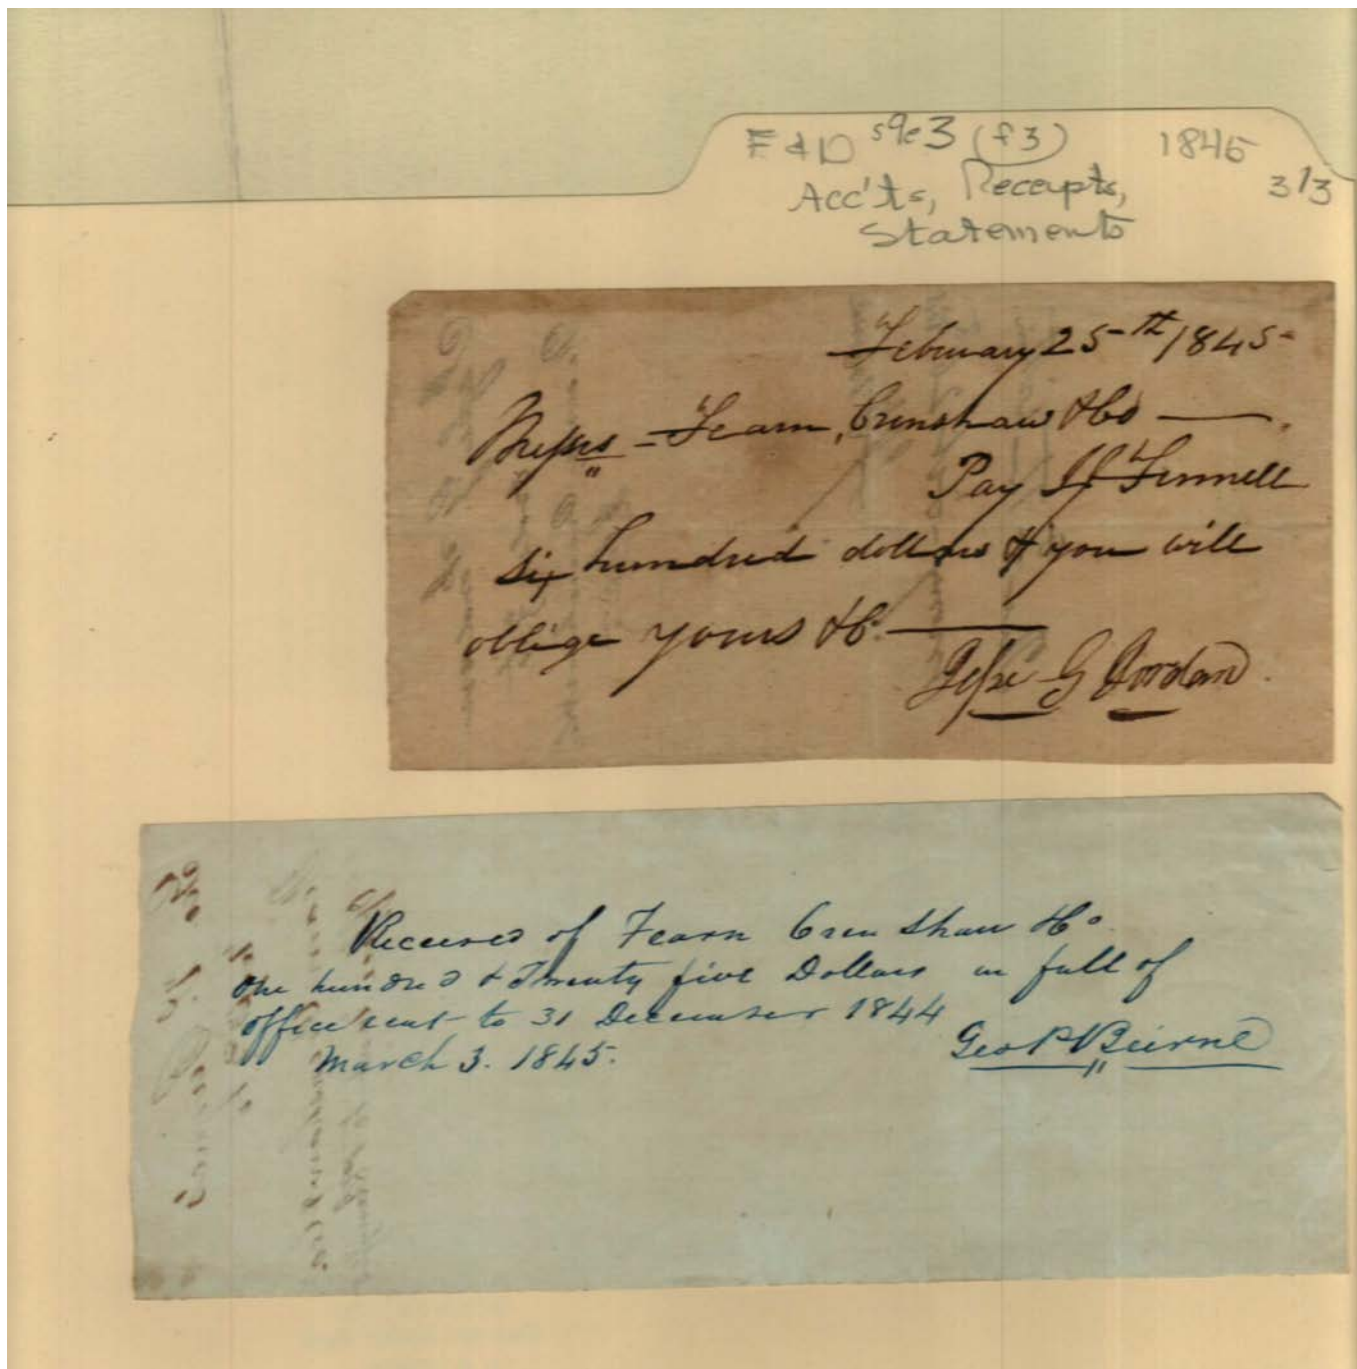 F & D s9e3 (f3) 1845
Acc'ts, Receipts, 3/3
Statements
February 25th 1845
Messrs Fearn, Crenshaw & Co
Pay Fennell
six hundred dollars & you will
oblige yours &c.
Jesse G Jordan
Received of Fearn Crenshaw & Co
One hundred & Twenty five Dollars in full of
office rent to 31 December 1844
March 3. 1845.
Geo P Beirne